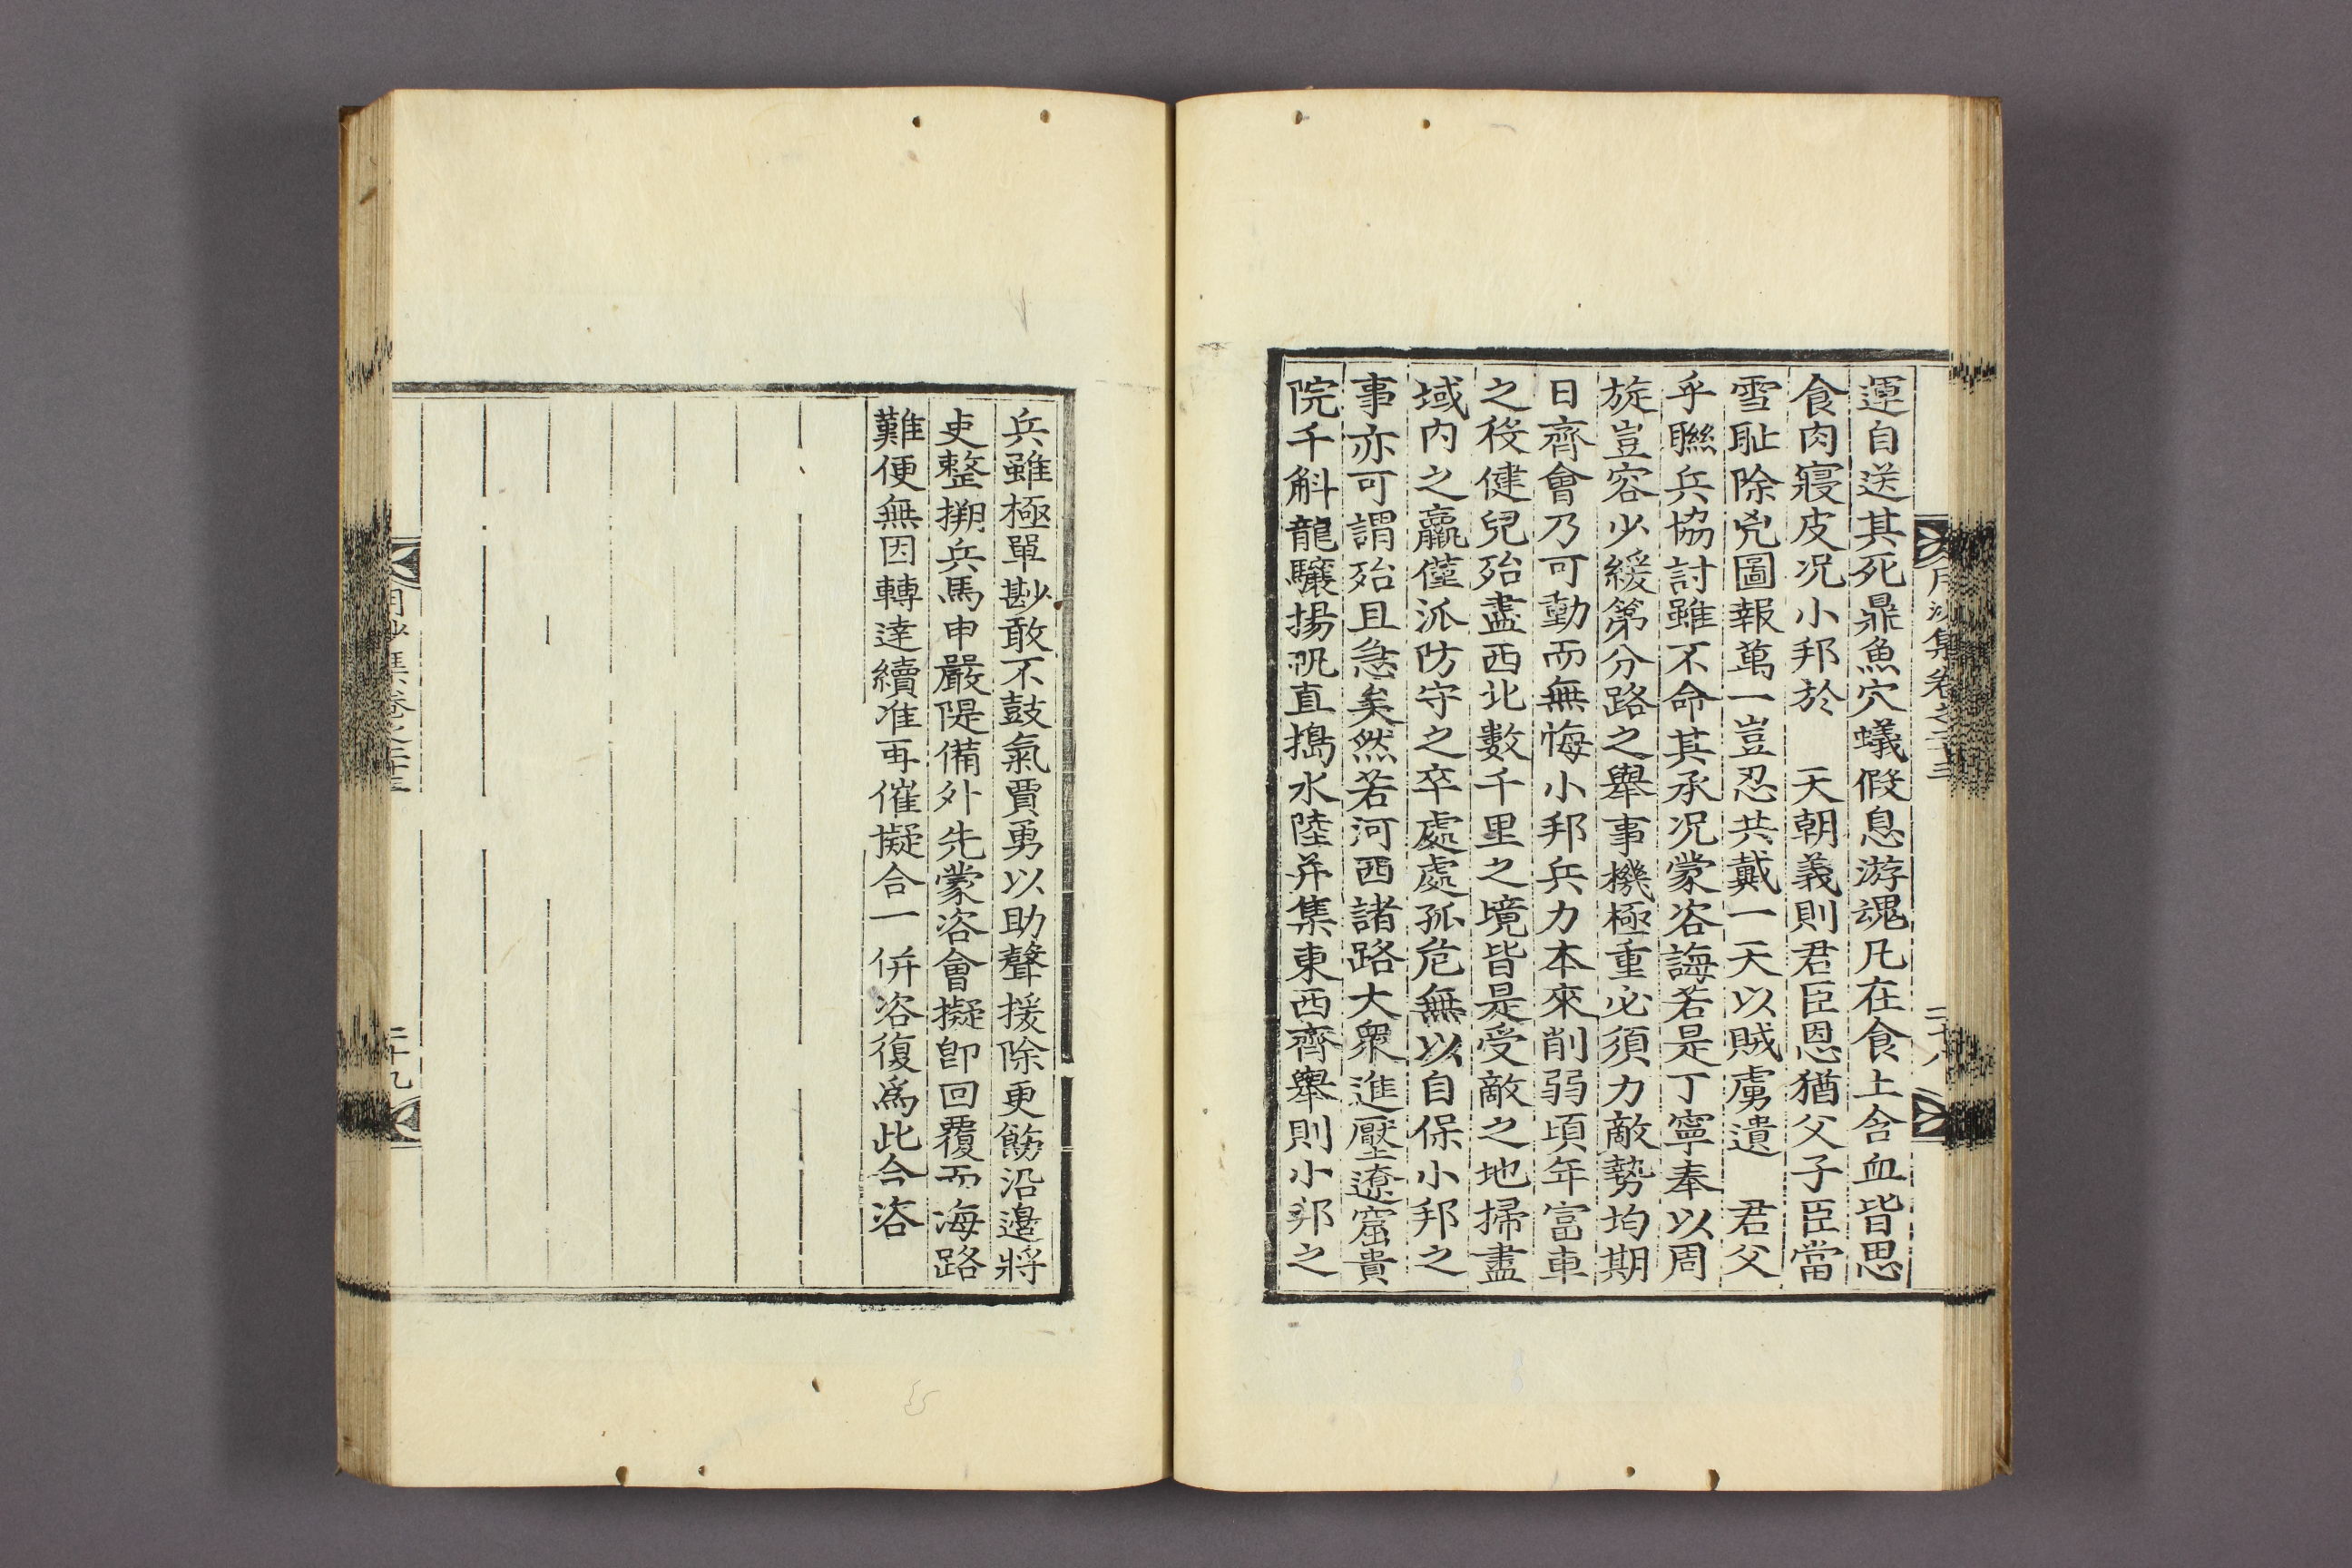 月沙集卷之二十三
二十八
運自送其死鼎魚穴蟻假息游魂凡在食土含血皆思
食肉寢皮况小邦於 天朝義則君臣恩猶父子臣當
雪耻除兇圖報萬一豈忍共戴一天以賊虜遺 君父
乎聮兵協討雖不命其承况蒙咨誨若是丁寧奉以周
旋豈容少緩第分路之舉事機極重必須力敵勢均期
日齊會乃可動而無悔小邦兵力本來削弱頃年富車
之役健兒殆盡西北數千里之境皆是受敵之地掃盡
域内之羸僅派防守之卒處處孤危無以自保小邦之
事亦可謂殆且急矣然若河西諸路大衆進壓遼窟貴
院千斛龍驤揚帆直搗水陸并集東西齊舉則小邦之
兵雖極單尠敢不鼓氣賈勇以助聲援除更飭沿邊將
吏整搠兵馬申嚴隄備外先蒙咨會擬卽回覆而海路
難便無因轉達續准再催擬合一倂咨復爲此合咨
月沙集卷之二十三
二十九